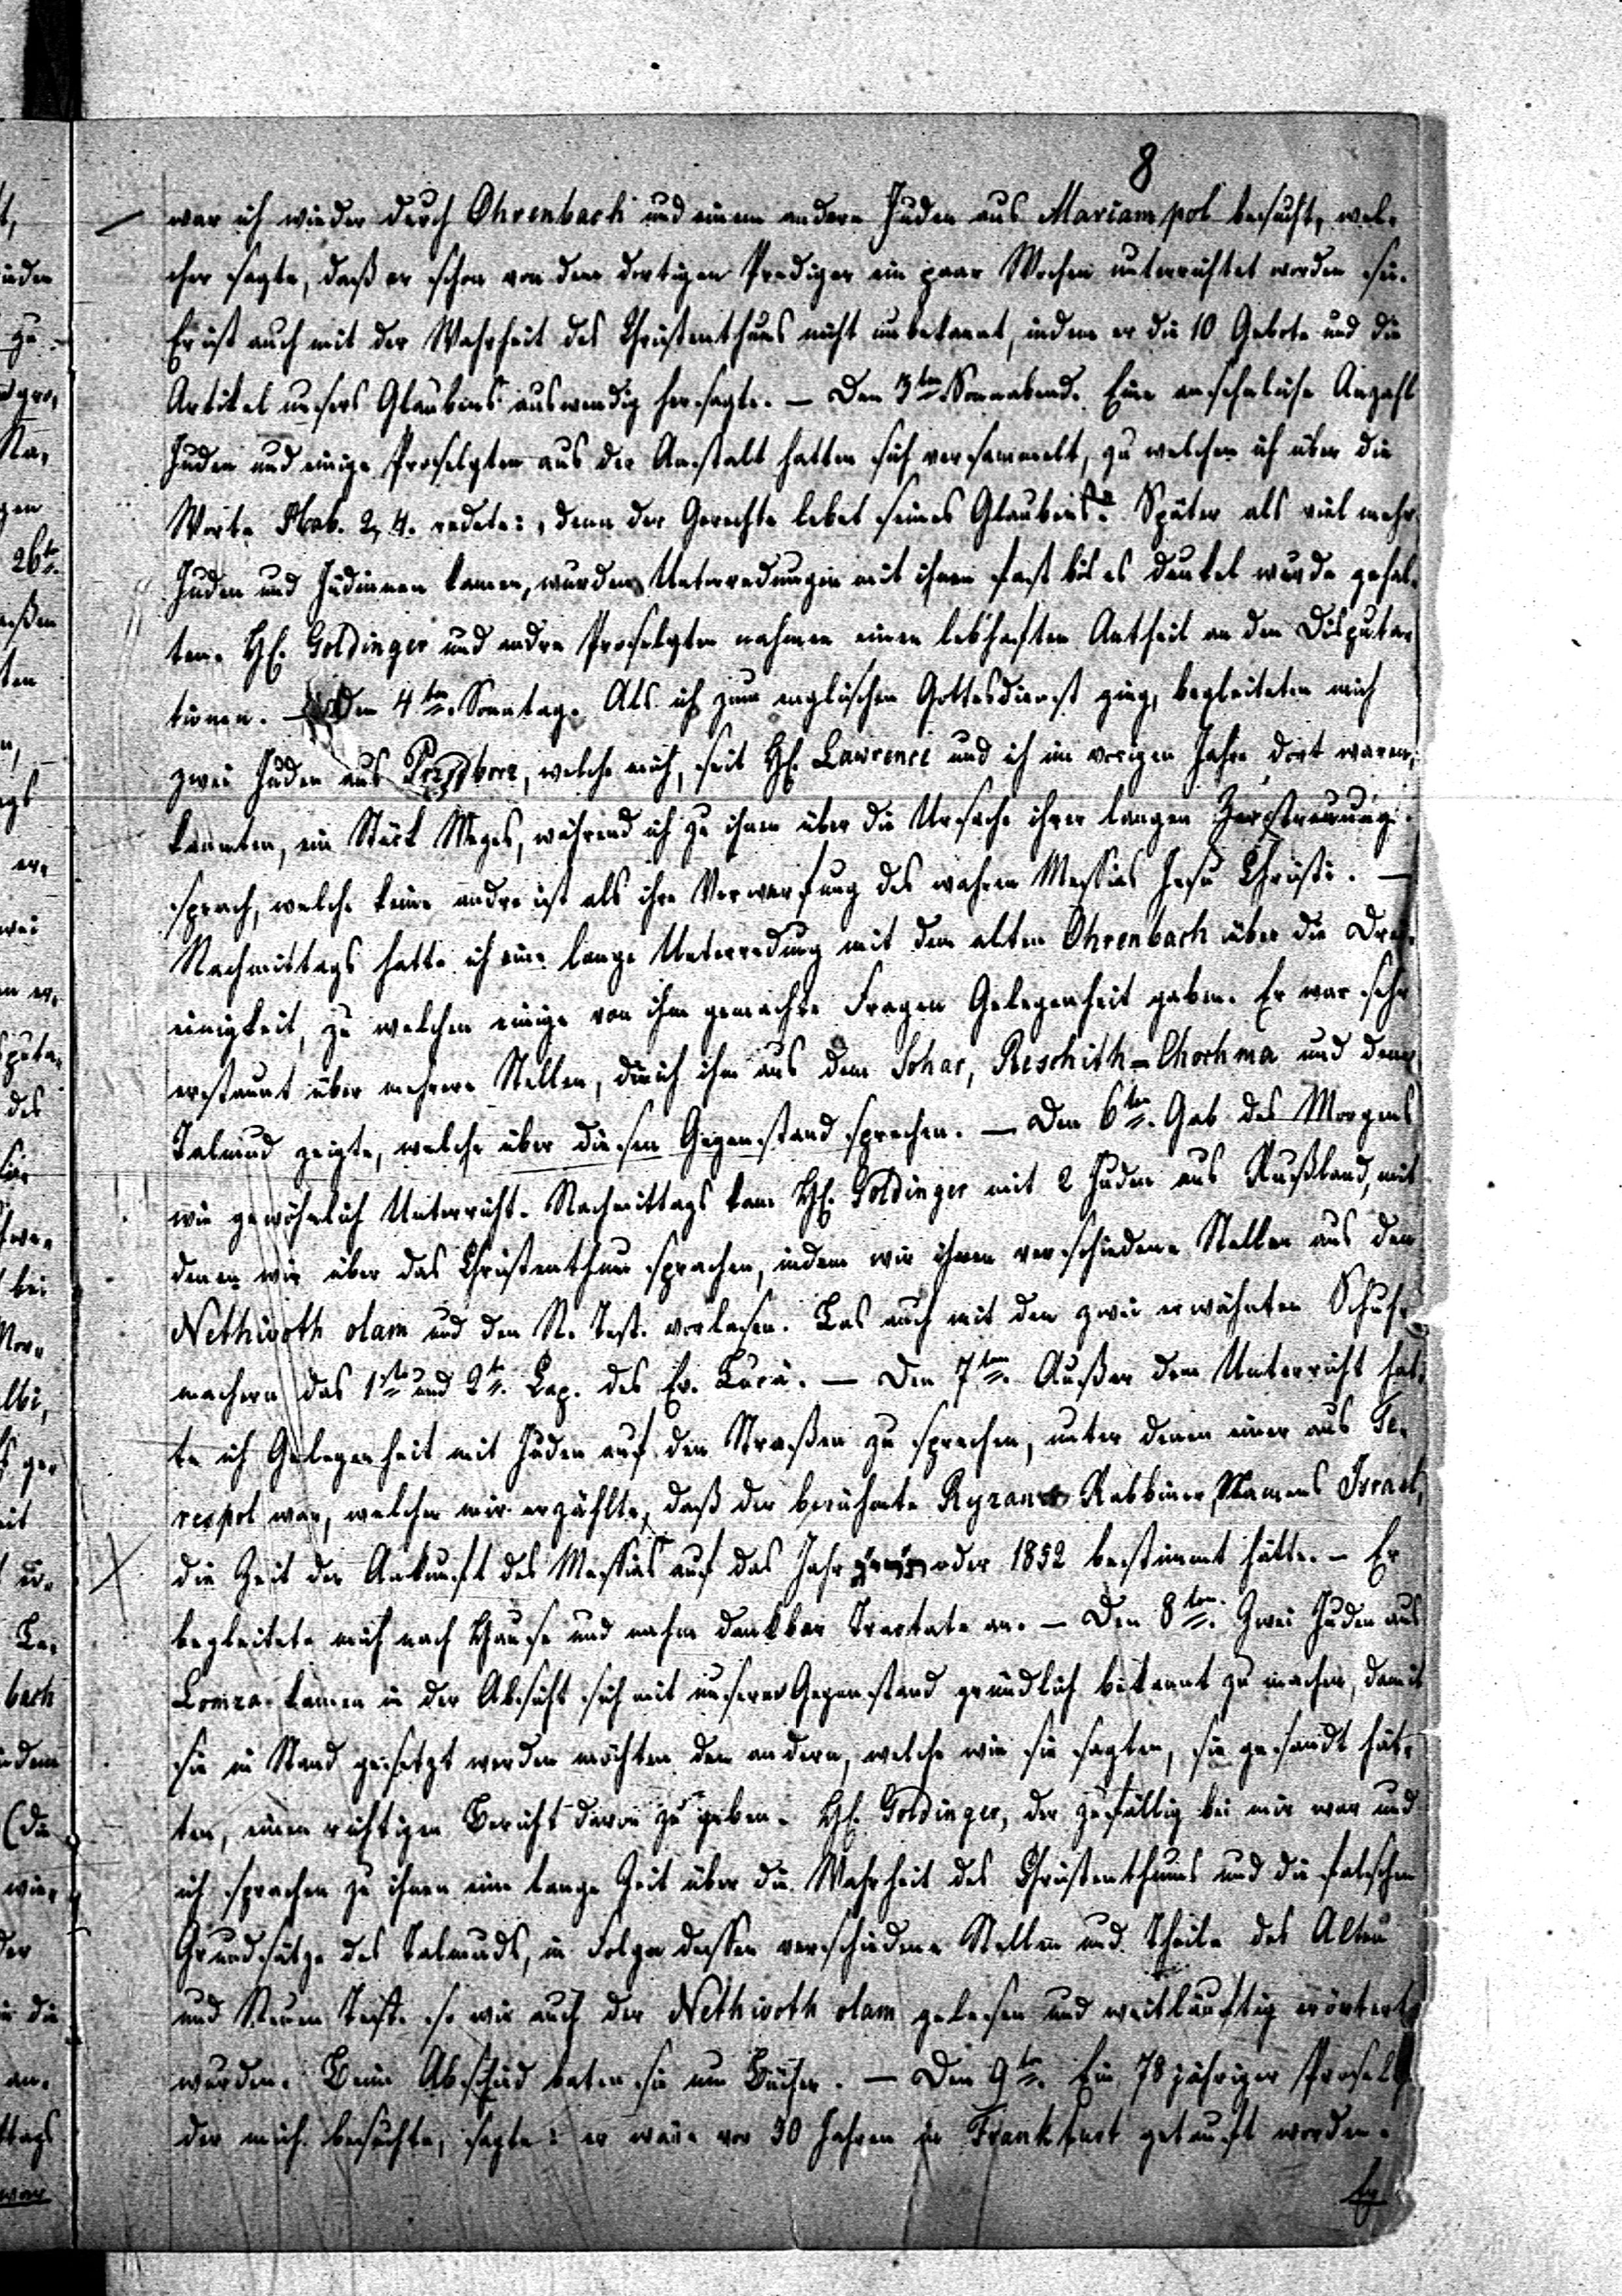 8
war ich wieder durch Ohrenbach und einem andern Juden aus Mariampol besucht, wel-
cher sagte, daß er schon von dem dortigen Prediger ein paar Wochen unterrichtet worden sei.
Er ist auch mit der Wahrheit des Christenthums nicht unbekannt, indem er die 10 Gebote und die
Artikel unsers Glaubens auswendig hersagte. — Den 3ten Sonnabend. Eine ansehnliche Anzahl
Juden und einige Proselyten aus der Anstalt hatten sich versammelt, zu welchen ich über die
Worte Hab. 2, 4. redete: „denn der Gerechte lebet seines Glaubens." Später als viel mehr
Juden und Jüdinnen kamen, wurden Unterredungen mit ihnen fast bis es dunkel wurde gehal-
ten. H. Goldinger und andre Proselyten nahmen einen lebhaften Antheil an den Disputa-
tionen. — Den 4ten Sonntag. Als ich zum englischen Gottesdienst ging, begleiteten mich
zwei Juden aus welche mich, seit H. Lawrence und ich im vorigen Jahre dort waren,
kannten, ein Stück Weges, während ich zu ihnen über die Ursache ihrer langen Zerstreuung
sprach, welche keine andre ist als ihre Verwerfung des wahren Messias Jesu Christi. —
Nachmittags hatte ich eine lange Unterredung mit dem alten Ohrenbach über die Drei-
einigkeit, zu welchen einige von ihm gemachte Fragen Gelegenheit gaben. Er war sehr
erstaunt über mehrere Stellen, die ich ihm aus dem Sohar, Reschith-Chochma und dem
Talmud zeigte, welche über diesen Gegenstand sprechen. — Den 6ten. Gab des Morgens
wie gewöhnlich Unterricht. Nachmittags kam H. Goldinger mit 2 Juden aus Rußland, mit
denen wir über das Christenthum sprachen, indem wir ihnen verschiedene Stellen aus dem
Nethivoth olam und dem N. Test. vorlasen. Las auch mit den zwei erwähnten Schuh-
machern das 1te und 2te Cap. des Ev. Lucä. — Den 7ten. Außer dem Unterricht hat-
te ich Gelegenheit mit Juden auf den Straßen zu sprechen, unter denen einer aus Te-
respol war, welcher mir erzählte, daß der berühmte Rabbiner, Namens Israel,
die Zeit der Ankunft des Messias auf das Jahr oder 1852 bestimmt hätte. – Er
begleitete mich nach Hause und nahm dankbar Tractate an. — Den 8ten. Zwei Juden aus
Lomza kamen in der Absicht sich mit unserem Gegenstand gründlich bekannt zu machen, damit
sie in Stand gesetzt werden möchten den andern, welche wie sie sagten, sie gesandt hät-
ten, einen richtigen Bericht davon zu geben. H. Goldinger, der zufällig bei mir war und
ich sprachen zu ihnen eine lange Zeit über die Wahrheit des Christenthums und die falschen
Grundsätze des Talmuds, in Folge dessen verschiedene Stellen und Theile des Alten
und Neuen Test. so wie auch der Nethivoth olam gelesen und weitläuftig erörtert
wurden. Beim Abschied baten sie um Bücher. — Den 9ten. Ein 78 jähriger Proselyt
der mich besuchte, sagte: er wäre vor 30 Jahren in Frankfurt getauft worden.